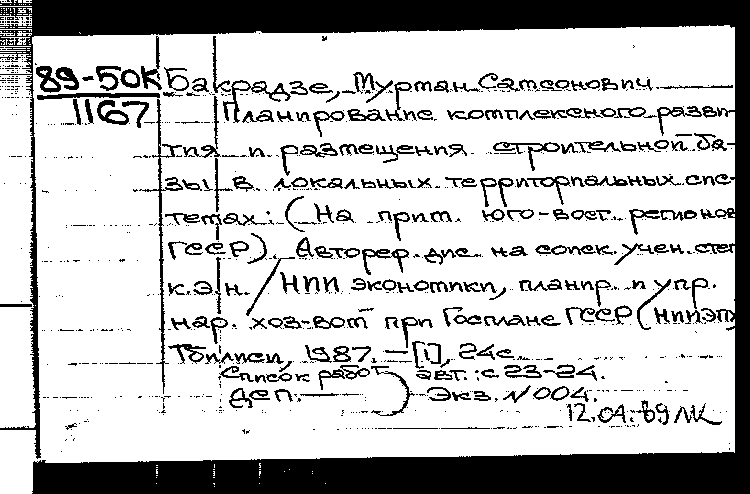 89-50К Бакрадзе, Мурман Самсонович
1167 Планирование комплексного разви-
тия и размещения строительной ба-
зы в локальных территориальных сис-
темах: (На прим. юго-вост. регионов
ГССР). Автореф. дис. на соиск. учен. степ
к.э.н. / НИИ экономики, планир. и упр.
нар. хоз-вом при Госплане ГССР (НИИЭП
Тбилиси, 1987. — [1], 24с.
Список работ авт.: с 23-24.
ДСП. — Экз. N 004.
12.04.89 ЛК